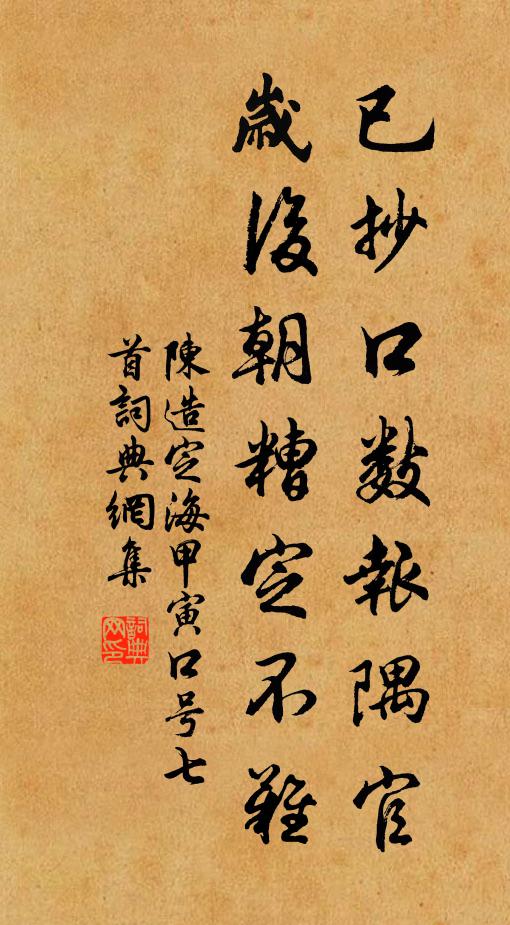 已抄口数報隅官
歳後朝糟定不難
陳造定海甲寅口号七
首詞典網集
詞典網印